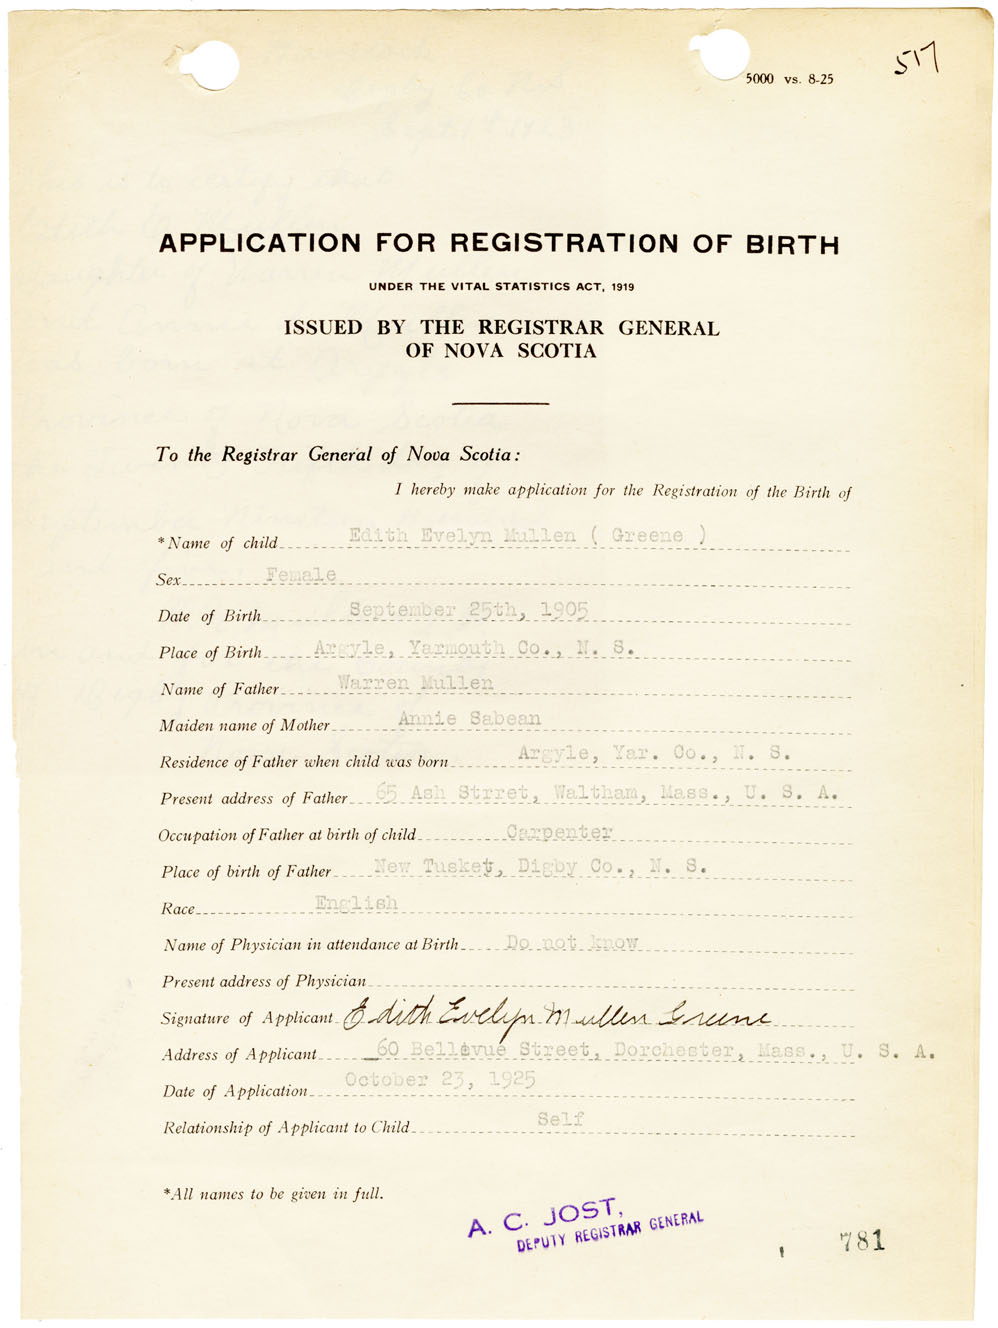 517
5000 vs. 8-25
APPLICATION FOR REGISTRATION OF BIRTH
UNDER THE VITAL STATISTICS ACT, 1919
ISSUED BY THE REGISTRAR GENERAL
OF NOVA SCOTIA
To the Registrar General of Nova Scotia:
I hereby make application for the Registration of the Birth of
*Name of child Edith Evelyn Mullen ( Greene )
Sex Female
Date of Birth September 25th, 1905
Place of Birth Argyle, Yarmouth Co., N. S.
Name of Father Warren Mullen
Maiden name of Mother Annie Sabean
Residence of Father when child was born Argyle, Yar. Co., N. S.
Present address of Father 65 Ash Strret, Waltham, Mass., U. S. A.
Occupation of Father at birth of child Carpenter
Place of birth of Father New Tusket, Digby Co., N. S.
Race English
Name of Physician in attendance at Birth Do not know
Present address of Physician
Signature of Applicant Edith Evelyn Mullen Greene
Address of Applicant 60 Bellevue Street, Dorchester, Mass., U. S. A.
Date of Application October 23, 1925
Relationship of Applicant to Child Self
*All names to be given in full.
A. C. JOST,
DEPUTY REGISTRAR GENERAL
781